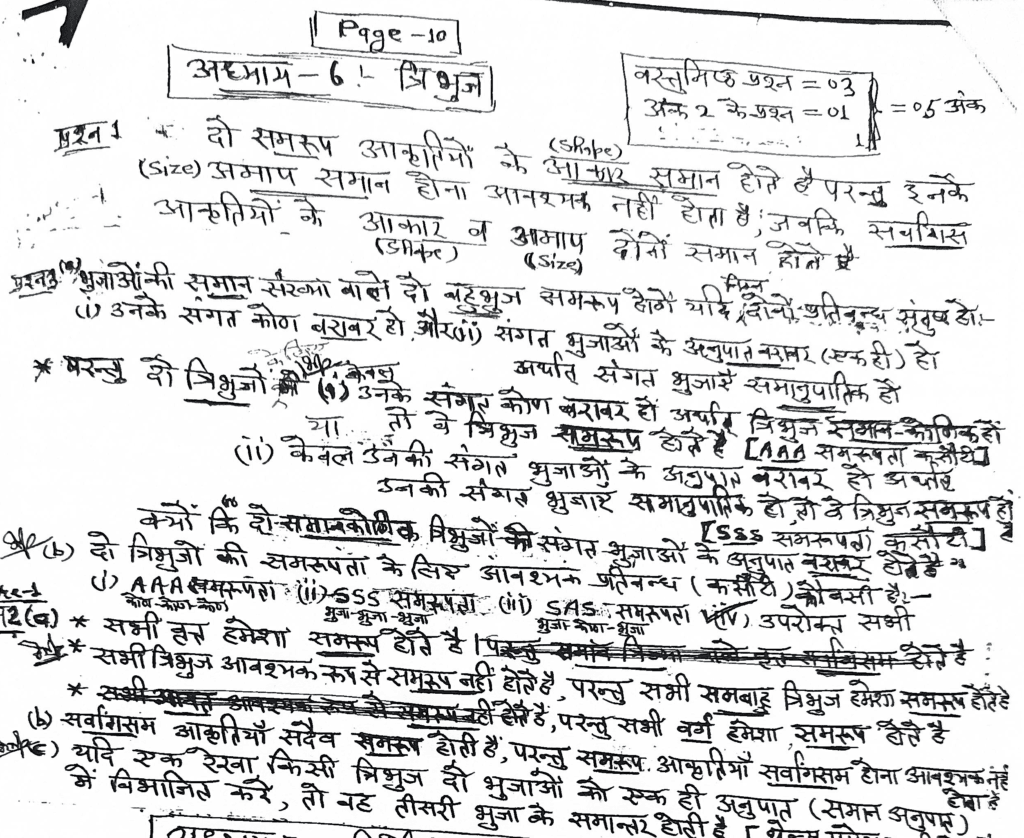 Page - 10
अध्याय - 6 :- त्रिभुज
वस्तुनिष्ठ प्रश्न = 03
अंक 2 के प्रश्न = 01
= 05 अंक
प्रश्न 1 दो समरूप आकृतियों के आकार (Shape) समान होते है परन्तु इनके
(Size) अमाप समान होना आवश्यक नहीं होता है, जबकि सर्वांगसम
आकृतियों के आकार (Shape) व अमाप (Size) दोनों समान होते है
(a) भुजाओं की समान संख्या वाले दो बहुभुज समरूप होगें यदि निम्न दोनों प्रतिबन्ध संतुष्ट हो:-
(i) उनके संगत कोण बराबर हो और (ii) संगत भुजाओं के अनुपात बराबर (एक ही) हो
अर्थात् संगत भुजाएँ समानुपातिक हो
* परन्तु दो त्रिभुजों केवल (i) उनके संगत कोण बराबर हो अर्थात् त्रिभुज समान-कोणिक हो
तो वे त्रिभुज समरूप होते है [AAA समरूपता कसौटी]
या
(ii) केवल उनकी संगत भुजाओं के अनुपात बराबर हो अर्थात्
उनकी संगत भुजाएँ समानुपातिक हो, तो वे त्रिभुज समरूप हों
[SSS समरूपता कसौटी]
क्यों कि दो समानकोणिक त्रिभुजों की संगत भुजाओं के अनुपात बराबर होते है
(b) दो त्रिभुजों की समरूपता के लिए आवश्यक प्रतिबन्ध (कसौटी) कौनसी है:-
(i) AAA समरूपता (ii) SSS समरूपता (iii) SAS समरूपता (iv) उपरोक्त सभी
कोण-कोण-कोण भुजा-भुजा-भुजा भुजा-कोण-भुजा
2(a) * सभी वृत्त हमेशा समरूप होते है
* सभी त्रिभुज आवश्यक रूप से समरूप नहीं होते है, परन्तु सभी समबाहु त्रिभुज हमेशा समरूप होते है
* परन्तु सभी वर्ग हमेशा समरूप होते है
(b) सर्वांगसम आकृतियाँ सदैव समरूप होती हैं, परन्तु समरूप आकृतियाँ सर्वांगसम होना आवश्यक नहीं होता है
(c) यदि एक रेखा किसी त्रिभुज दो भुजाओं को एक ही अनुपात (समान अनुपात)
में विभाजित करे, तो वह तीसरी भुजा के समान्तर होती है